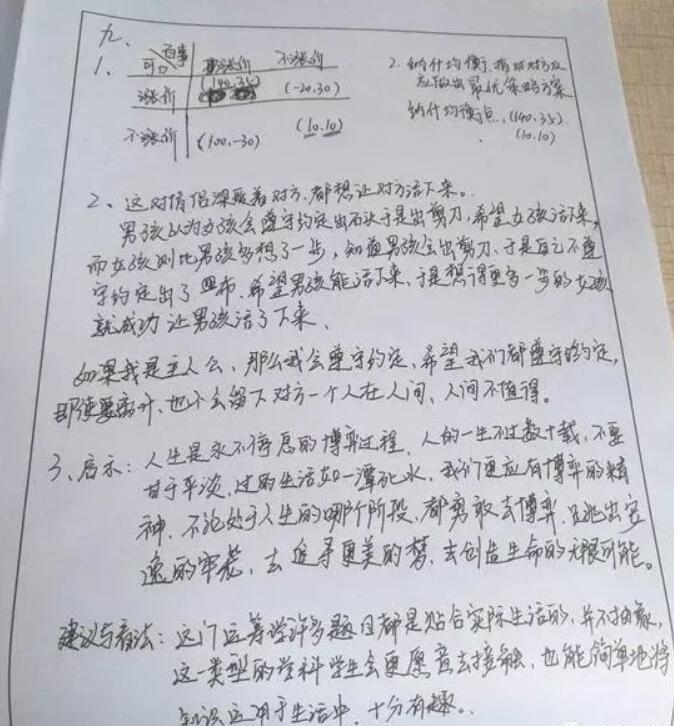 九、
1、
百事
可口
涨价 不涨价
涨价 (140.35) (-20.30)
不涨价 (100.-30) (10.10)
2. 纳什均衡, 指对对方反
应做出最优策略方案
纳什均衡点, (140.35).
(10.10)
2、这对情侣深爱着对方,都想让对方活下来。
男孩认为女孩会遵守约定出石头于是出剪刀,希望女孩活下来,
而女孩则比男孩多想了一步,知道男孩会出剪刀、于是自己不遵
守约定出了布、希望男孩能活下来、于是想得更多一步的女孩
就成功让男孩活了下来、
如果我是主人公、那么我会遵守约定、希望我们都遵守约定,
即使要离开、也不会留下对方一个人在人间、人间不值得。
3、启示: 人生是永不停息的博弈过程, 人的一生不过数十载,不要
甘于平淡,过的生活如一潭死水,我们更应有博弈的精
神、不论处于人生的哪个阶段、都勇敢去博弈,跳出安
逸的牢笼、去追寻更美的梦、去创造生命的无限可能。
建议与看法: 这门运筹学许多题目都是贴合实际生活的,并不抽象,
这一类型的学科学生会更愿意去接触、也能简单地将
知识运用于生活中、十分有趣。